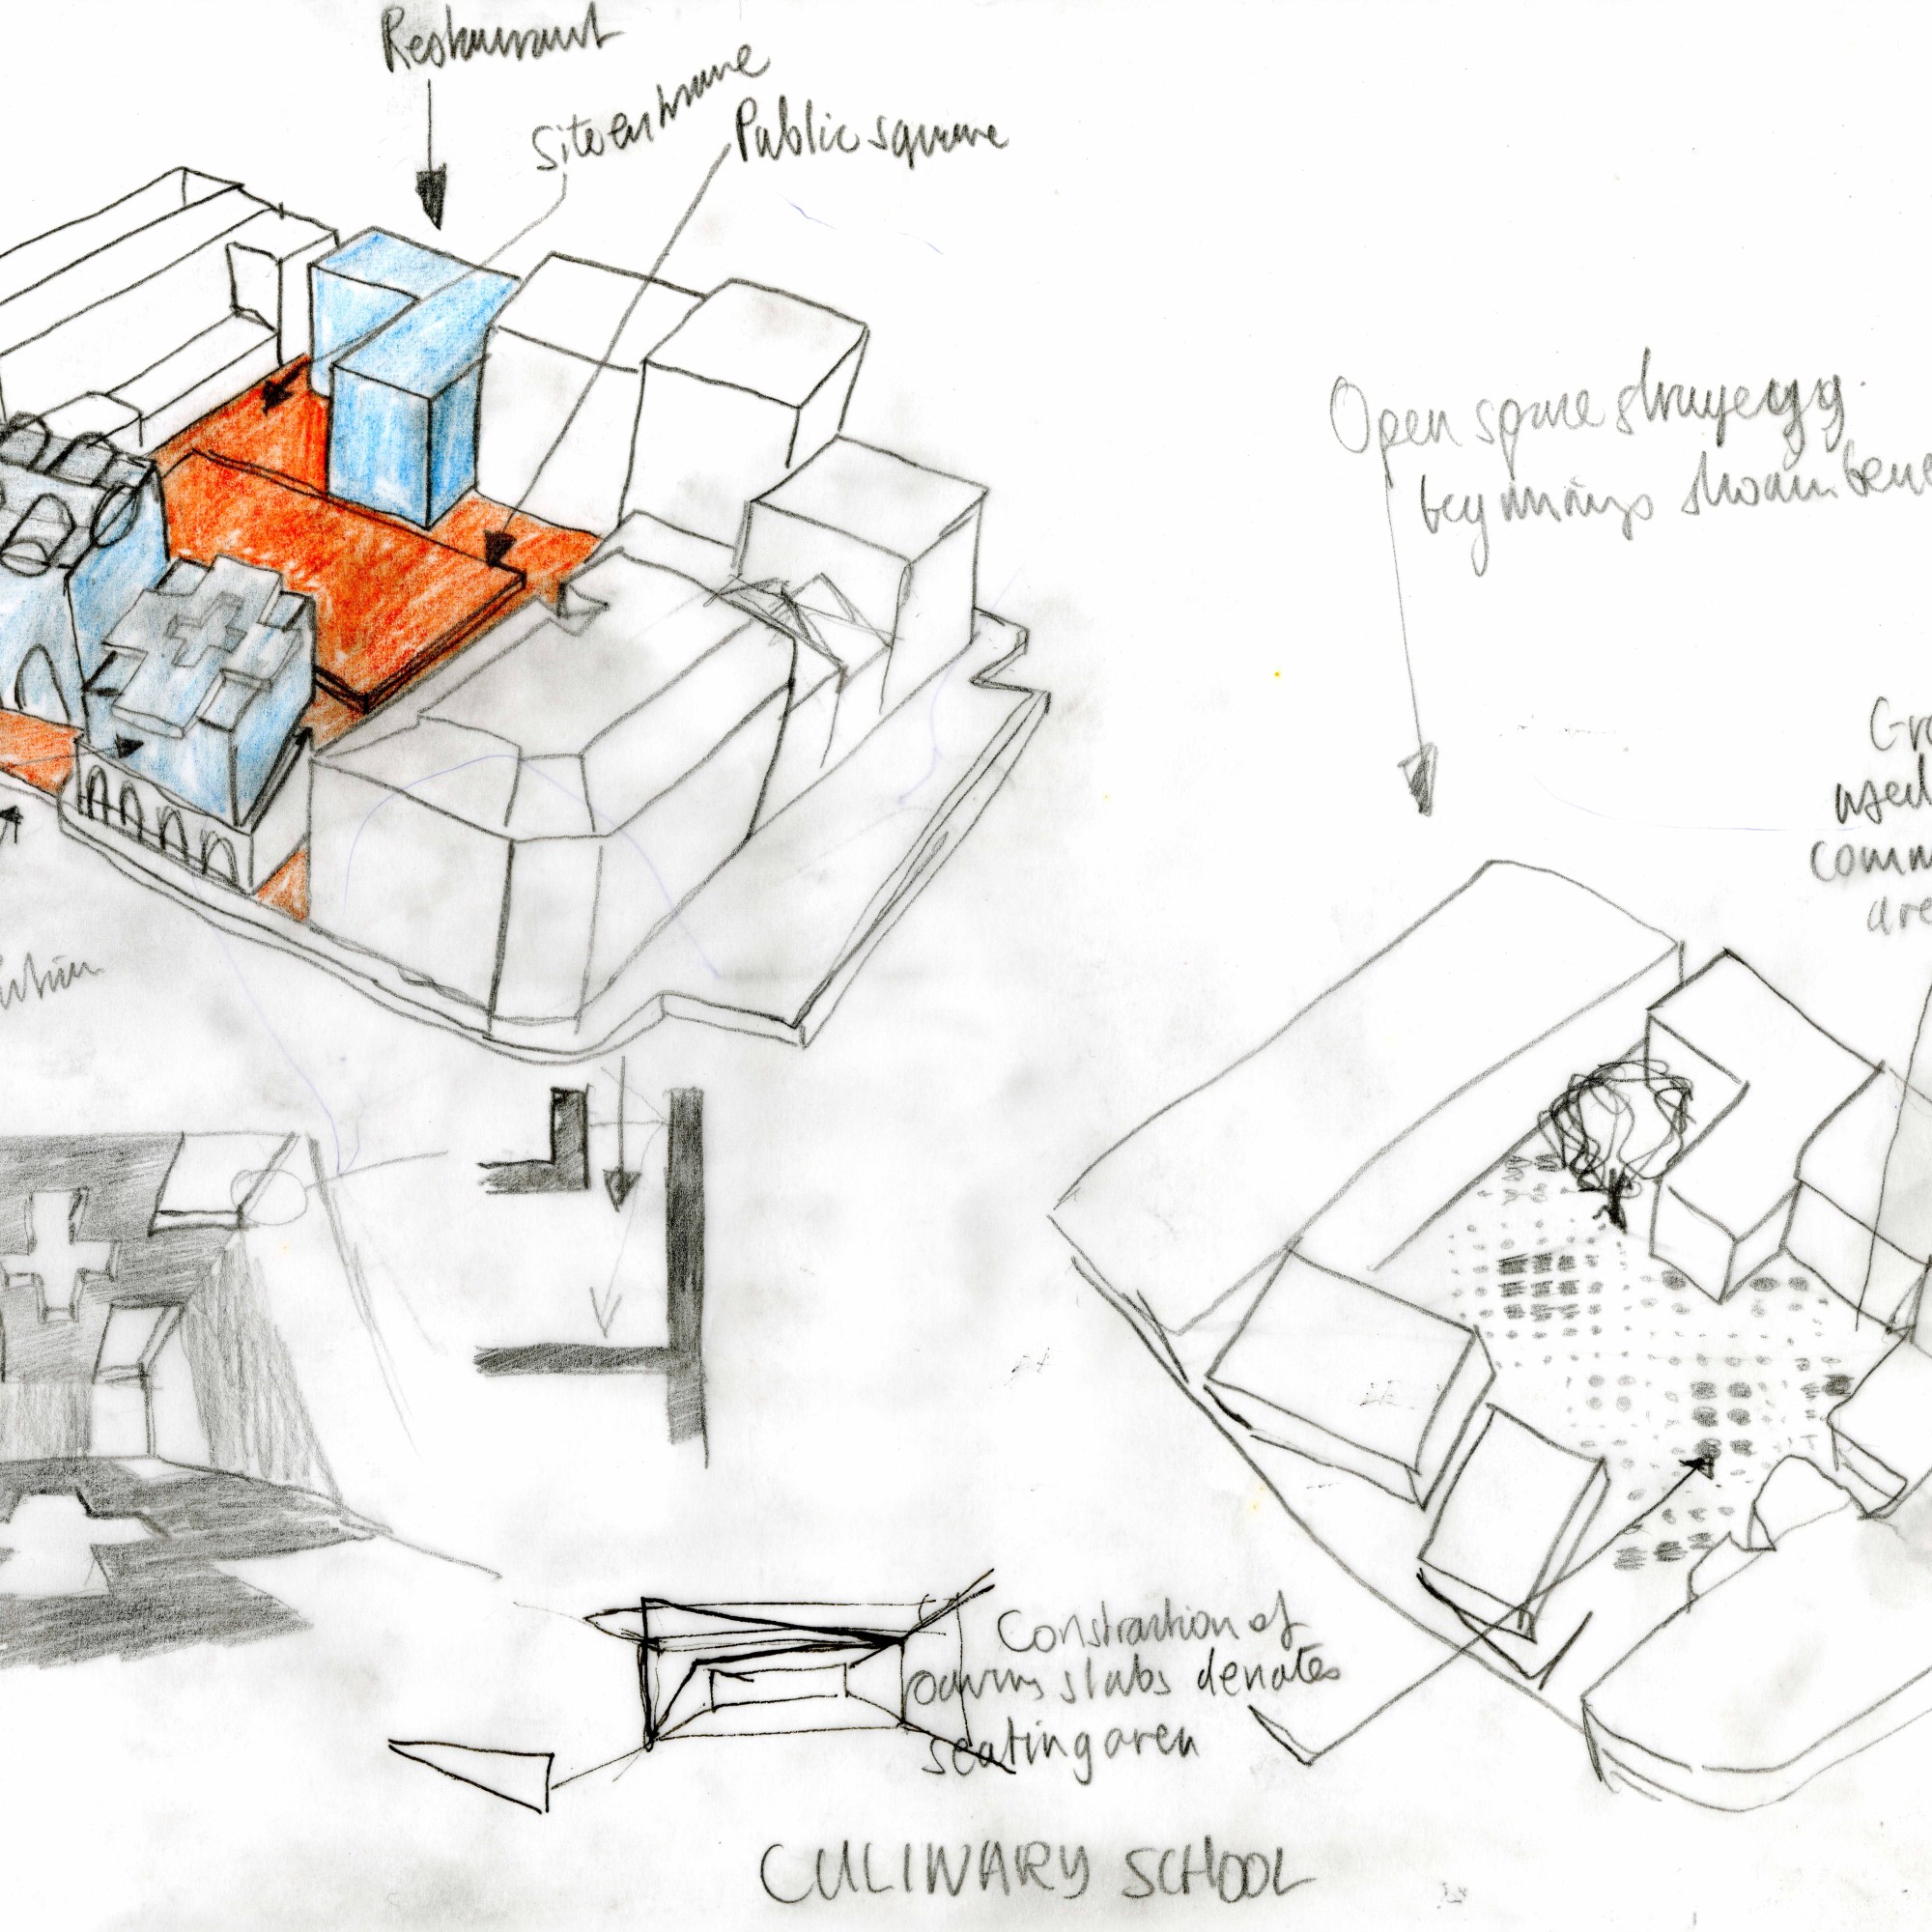 Restaurant
Site entrance
Public square
Open space strategy
beginnings shown
used
Construction of
paving slabs denotes
seating area
CULINARY SCHOOL